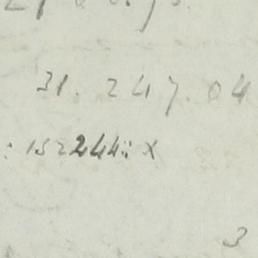 31.247.04
: 152244:: x
3